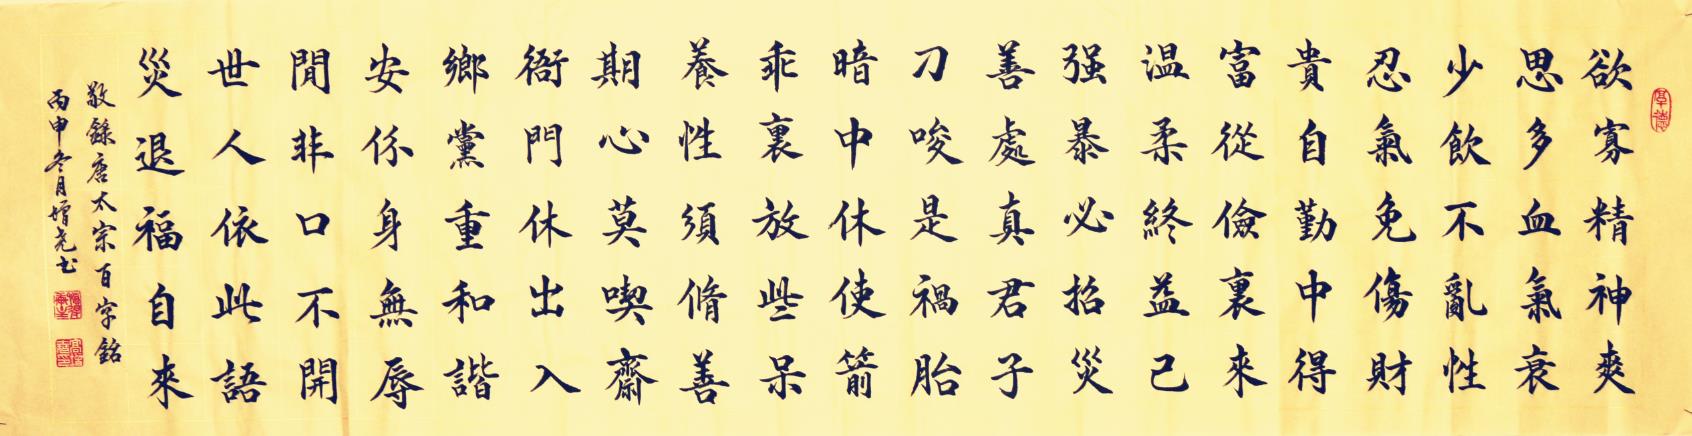 厚德
欲寡精神爽
思多血氣衰
少飲不亂性
忍氣免傷財
貴自勤中得
富從儉裏來
温柔終益己
强暴必招災
善處真君子
刁唆是禍胎
暗中休使箭
乖裏放些呆
養性須脩善
期心莫喫齋
衙門休出入
鄉黨重和諧
安係身無辱
閒非口不開
世人依此語
災退福自來
敬錄唐太宗百字銘
丙申冬月增尧书